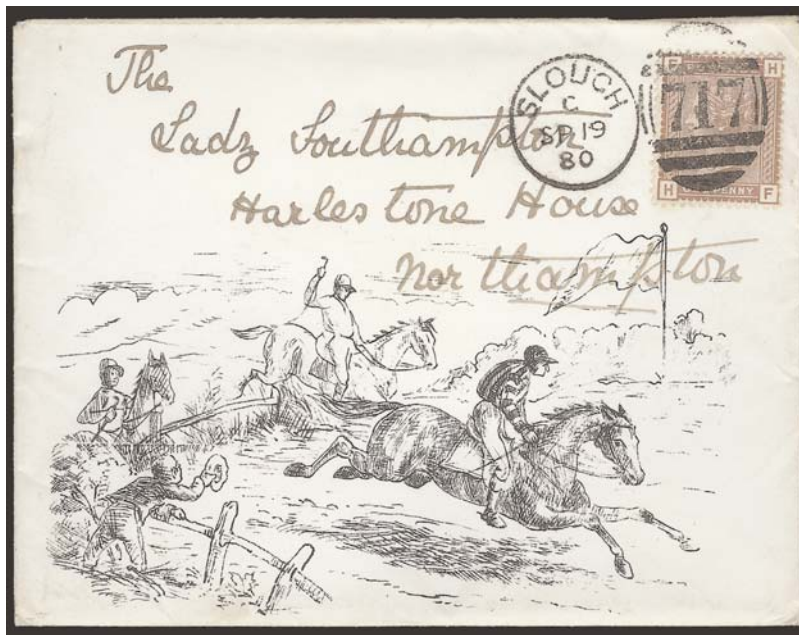 The
Lady Southampton
Harlestone House
Northampton
SLOUGH
C
SP 19
80
717
F H
PENNY
H F